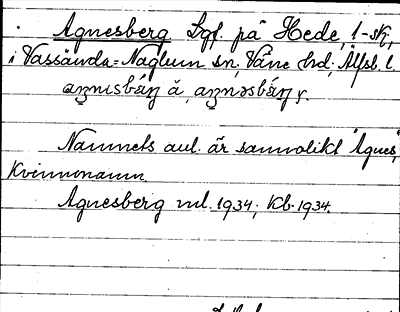 Agnesberg Lgf. på Hede, 1-sk,
i Vassända-Naglum sn, Väne hd, Älfsb. l.
Namnets aul. är sannolikt "Agnes",
Kvinnonamn.
Agnesberg ml. 1934; Kb. 1934.